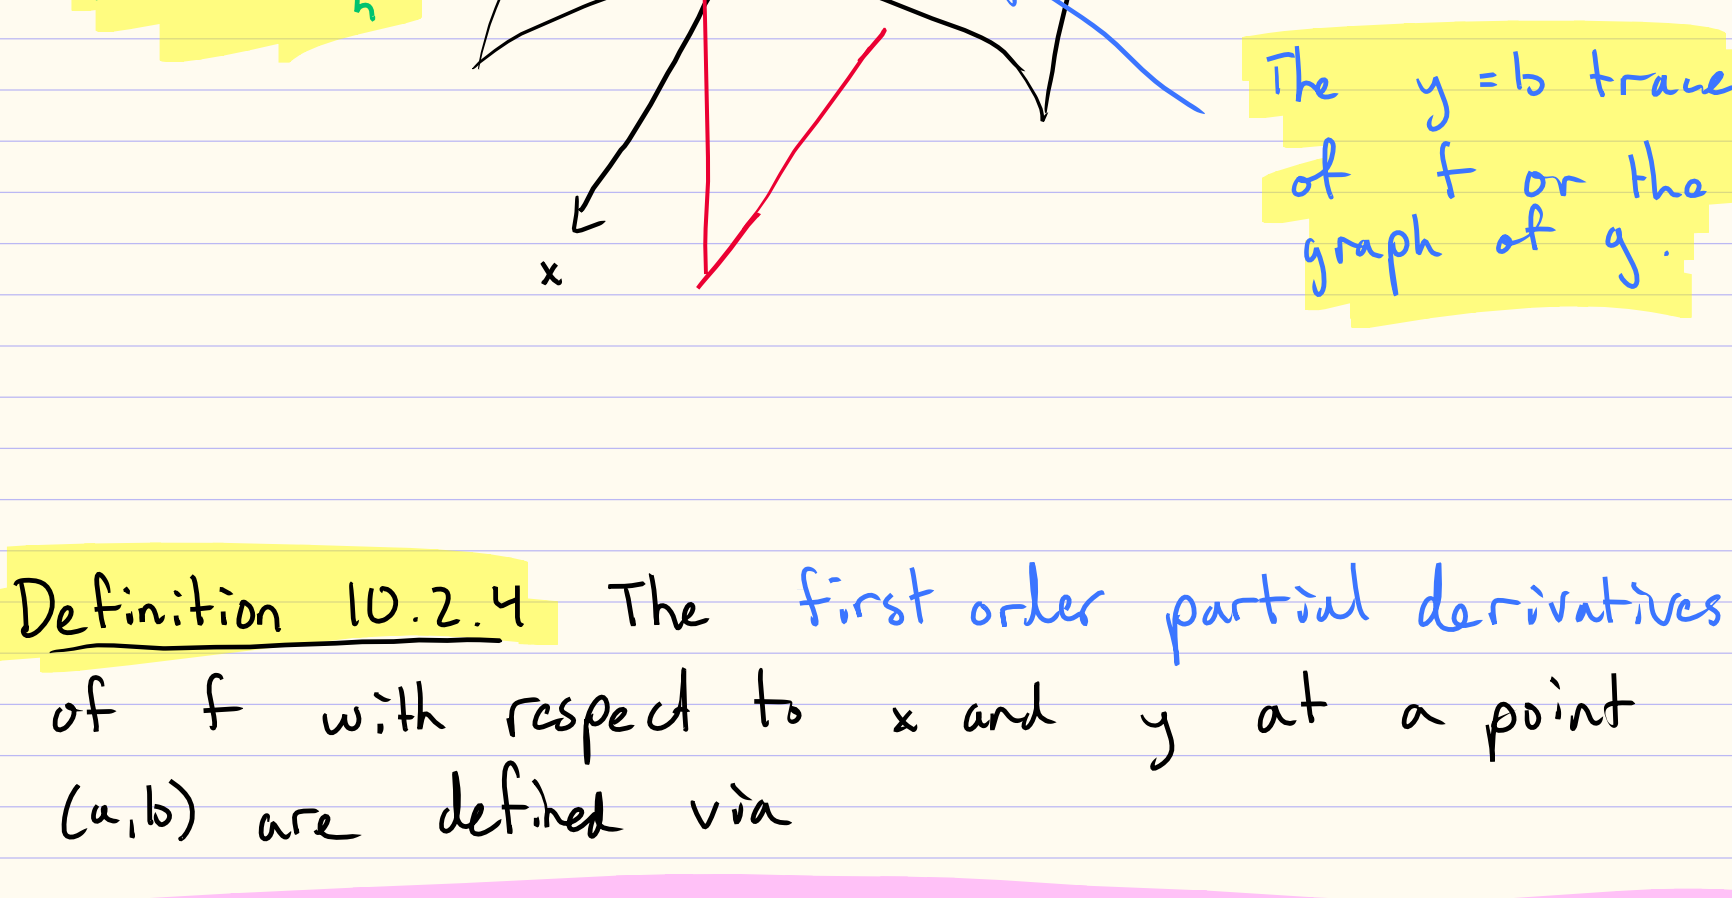 h
The y = b trace
of f or the
graph of g.
x
Definition 10.2.4 The first order partial derivatives
of f with respect to x and y at a point
(a,b) are defined via